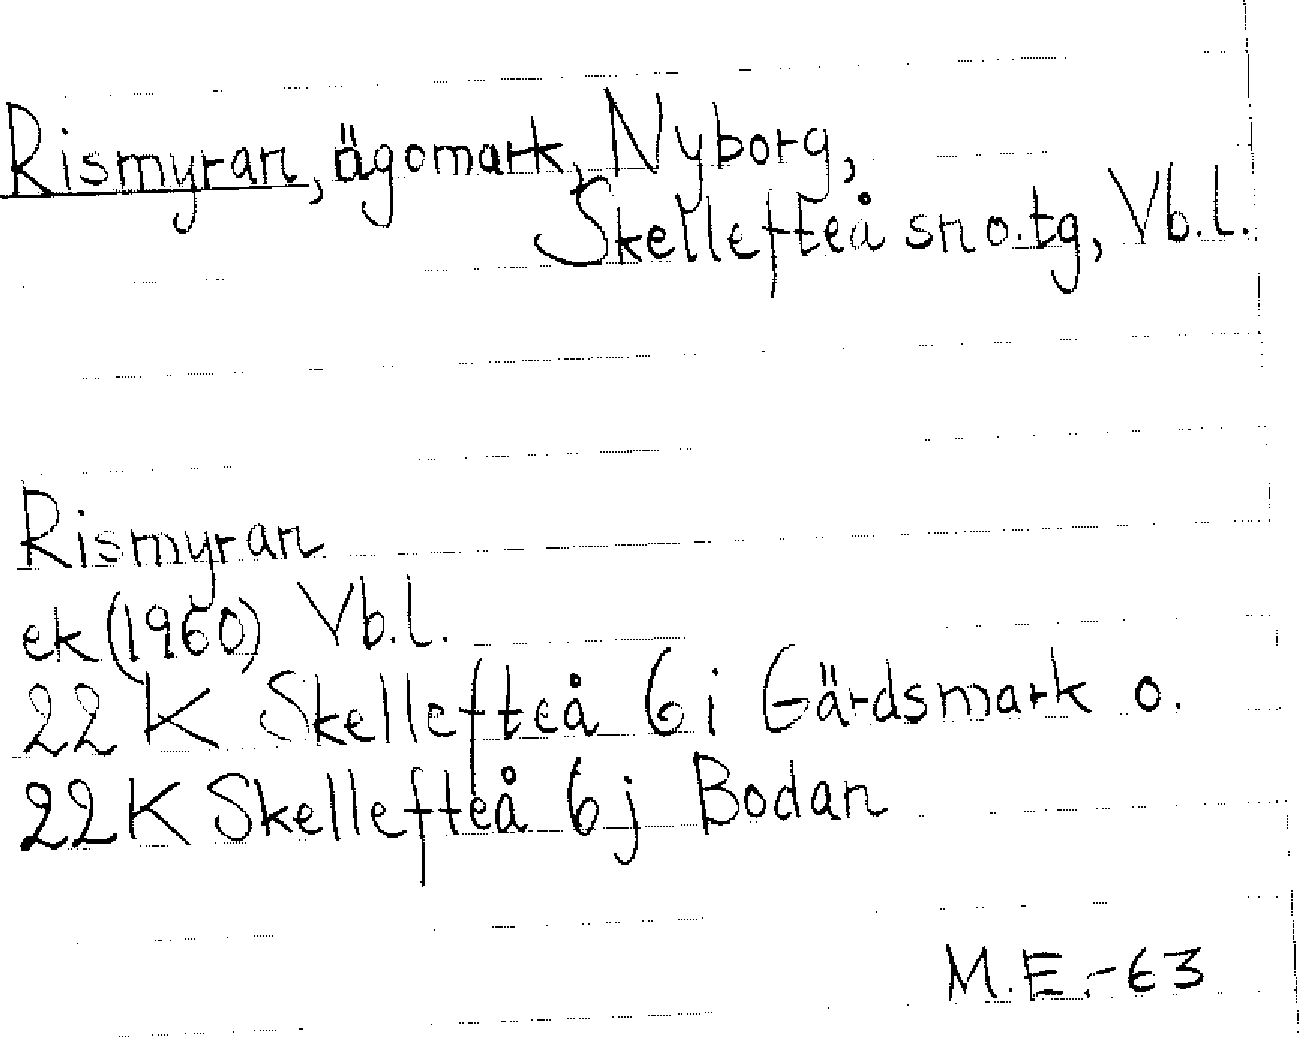 Rismyran, ägomark, Nyborg,
Skellefteå sn o. tg, Vb.l.
Rismyran
ek (1960) Vb.l.
22 K Skellefteå 6 i Gärdsmark o.
22 K Skellefteå 6 j Bodan
M.E.-63